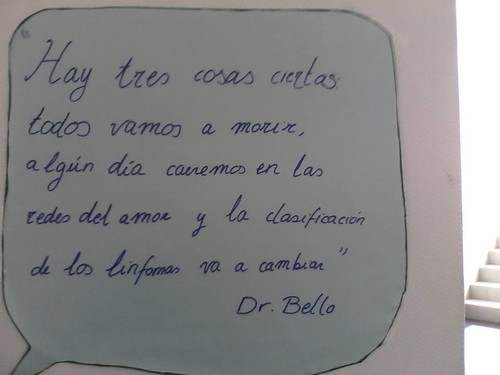 "Hay tres cosas ciertas:
todos vamos a morir,
algún día caeremos en las
redes del amor y la clasificación
de los linfomas va a cambiar"
Dr. Bello